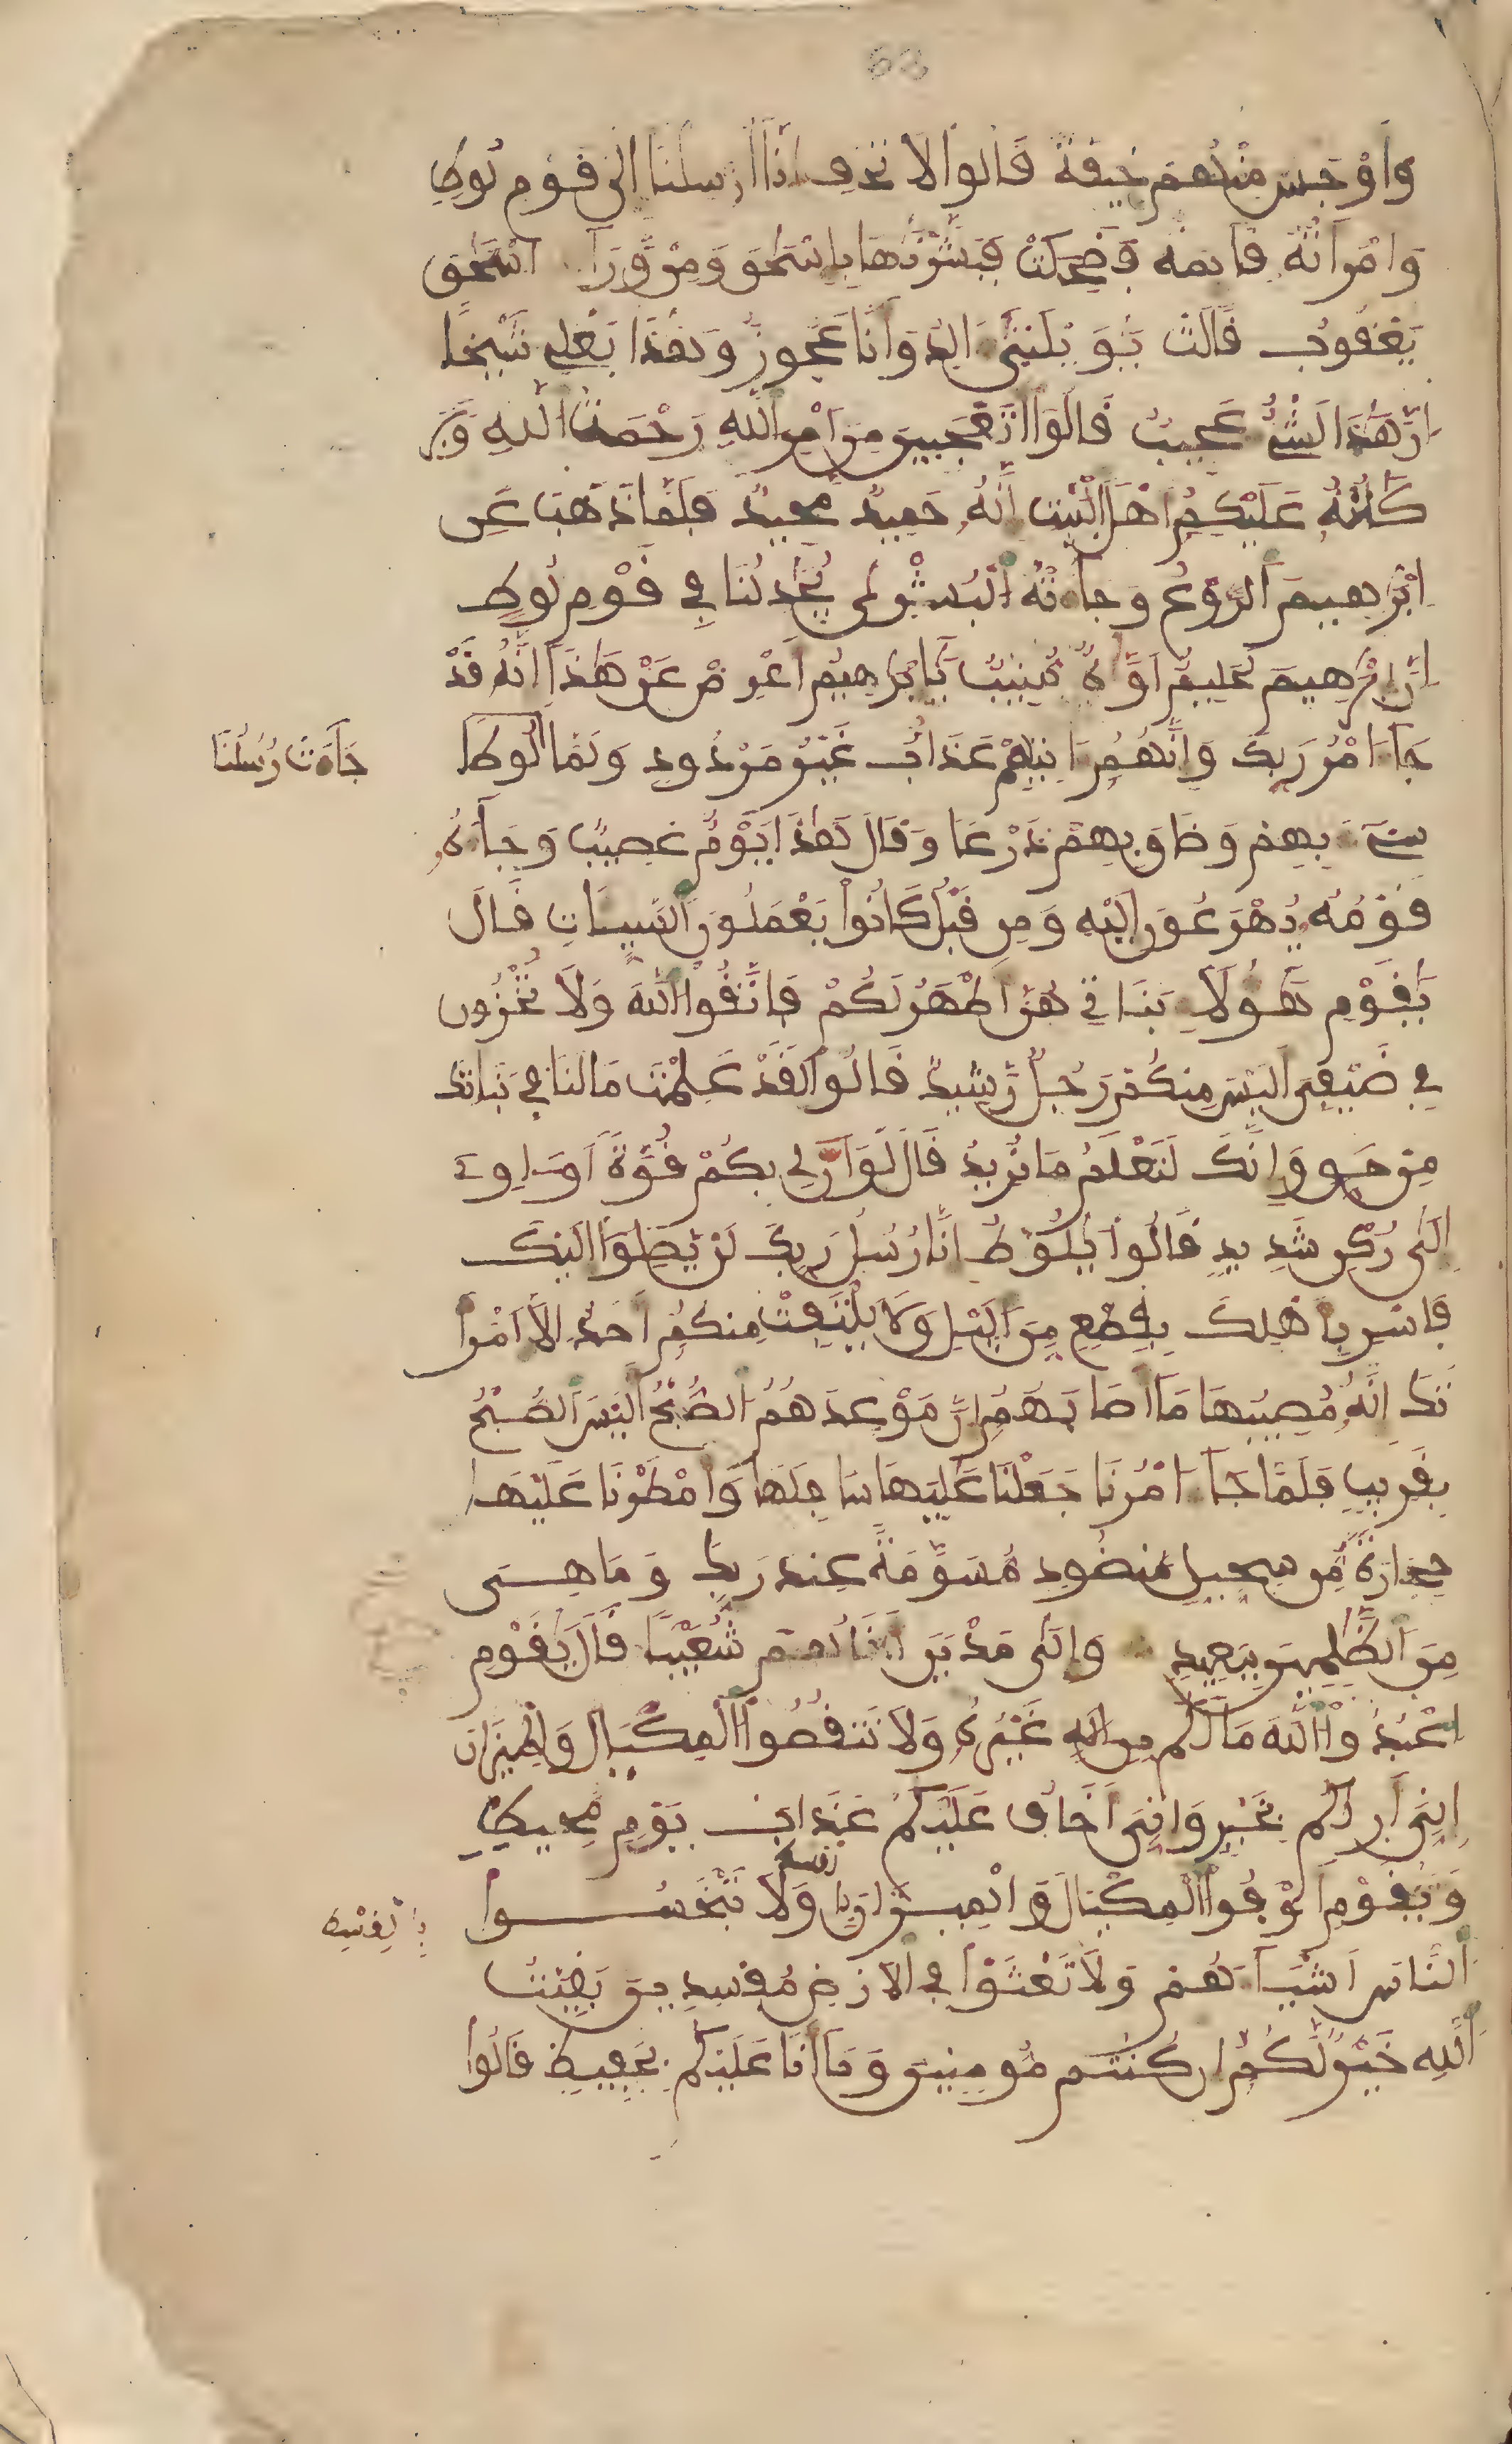 63
وَأَوْجَسَ مِنْهُمْ خِيفَةً قَالُوا لَا تَخَفِ انَّا أُرْسِلْنَا إِلَى قَوْمِ لُوطٍ
وَامْرَأَتُهُ قَائِمَةٌ فَضَحِكَتْ فَبَشَّرْنَٰهَا بِإِسْحَٰقَ وَمِنْ وَّرَآءِ اسْحَٰقَ
يَعْقُوبُ قَالَتْ يَٰوَيْلَتَىٰ ءَالِدُ وَأَنَا عَجُوزٌ وَهَٰذَا بَعْلِي شَيْخًا
إِنَّ هَٰذَا لَشَيْءٌ عَجِيبٌ قَالُوٓا أَتَعْجَبِينَ مِنَ امْرِ اللَّهِ رَحْمَتُ اللَّهِ وَبَرَ
كَٰتُهُ عَلَيْكُمُ أَهْلَ الْبَيْتِ إِنَّهُ حَمِيدٌ مَّجِيدٌ فَلَمَّا ذَهَبَ عَنِ
ابْرَٰهِيمَ الرَّوْعُ وَجَآءَتْهُ الْبُشْرَىٰ يُجَٰدِلُنَا فِي قَوْمِ لُوطٍ
إِنَّ إِبْرَٰهِيمَ لَحَلِيمٌ أَوَّٰهٌ مُّنِيبٌ يَٰٓإِبْرَٰهِيمُ أَعْرِضْ عَنْ هَٰذَآ إِنَّهُ قَدْ
جَآءَ امْرُ رَبِّكَ وَإِنَّهُمُ ءَاتِيهِمْ عَذَابٌ غَيْرُ مَرْدُودٍ وَلَمَّا لُوطًا
جَآءَتْ رُسُلُنَا
سِيٓءَ بِهِمْ وَضَاقَ بِهِمْ ذَرْعًا وَقَالَ هَٰذَا يَوْمٌ عَصِيبٌ وَجَآءَهُ
قَوْمُهُ يُهْرَعُونَ إِلَيْهِ وَمِن قَبْلُ كَانُوا يَعْمَلُونَ السَّيِّـَٔاتِ قَالَ
يَٰقَوْمِ هَٰٓؤُلَآءِ بَنَاتِي هُنَّ أَطْهَرُ لَكُمْ فَاتَّقُوا اللَّهَ وَلَا تُخْزُونِ
فِي ضَيْفِيَ أَلَيْسَ مِنكُمْ رَجُلٌ رَّشِيدٌ قَالُوا لَقَدْ عَلِمْتَ مَا لَنَا فِي بَنَاتِكَ
مِنْ حَقٍّ وَإِنَّكَ لَتَعْلَمُ مَا نُرِيدُ قَالَ لَوَ أَنَّ لِي بِكُمْ قُوَّةً أَوَ ـاوِيٓ
إِلَىٰ رُكْنٍ شَدِيدٍ قَالُوا يَٰلُوطُ إِنَّا رُسُلُ رَبِّكَ لَنْ يَّصِلُوٓا إِلَيْكَ
فَاسْرِ بِأَهْلِكَ بِقِطْعٍ مِّنَ الَّيْلِ وَلَا يَلْتَفِتْ مِنكُمُ أَحَدٌ إِلَّا امْرَأَ
تَكَ إِنَّهُ مُصِيبُهَا مَآ أَصَابَهُمُ إِنَّ مَوْعِدَهُمُ الصُّبْحُ أَلَيْسَ الصُّبْحُ
بِقَرِيبٍ فَلَمَّا جَآءَ امْرُنَا جَعَلْنَا عَٰلِيَهَا سَافِلَهَا وَأَمْطَرْنَا عَلَيْهَا
حِجَارَةً مِّن سِجِّيلٍ مَّنضُودٍ مُّسَوَّمَةً عِندَ رَبِّكَ وَمَا هِيَ
مِنَ الظَّٰلِمِينَ بِبَعِيدٍ وَإِلَىٰ مَدْيَنَ أَخَاهُمْ شُعَيْبًا قَالَ يَٰقَوْمِ
اعْبُدُوا اللَّهَ مَا لَكُم مِّنِ الَٰهٍ غَيْرُهُ وَلَا تَنقُصُوا الْمِكْيَالَ وَالْمِيزَانَ
إِنِّيَ أَرَىٰكُم بِخَيْرٍ وَإِنِّيَ أَخَافُ عَلَيْكُمْ عَذَابَ يَوْمٍ مُّحِيطٍ
وَيَٰقَوْمِ أَوْفُوا الْمِكْيَالَ وَالْمِيزَانَ وَلَا تَبْخَسُوا
بِالْقِسْطِ
النَّاسَ أَشْيَآءَهُمْ وَلَا تَعْثَوْا فِي الْأَرْضِ مُفْسِدِينَ بَقِيَّتُ
اللَّهِ خَيْرٌ لَّكُمُ إِن كُنتُم مُّومِنِينَ وَمَآ أَنَا عَلَيْكُم بِحَفِيظٍ قَالُوا